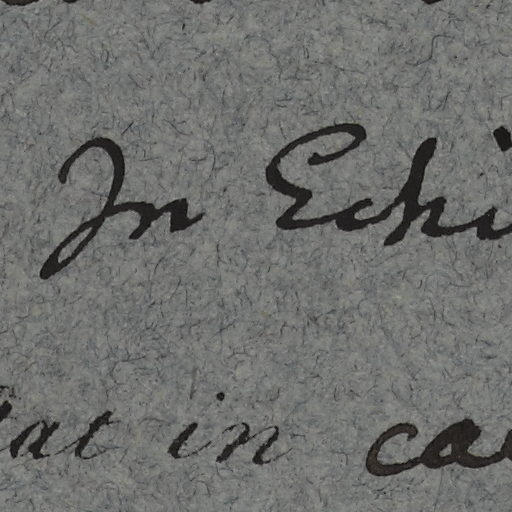 In Echi
at in ca